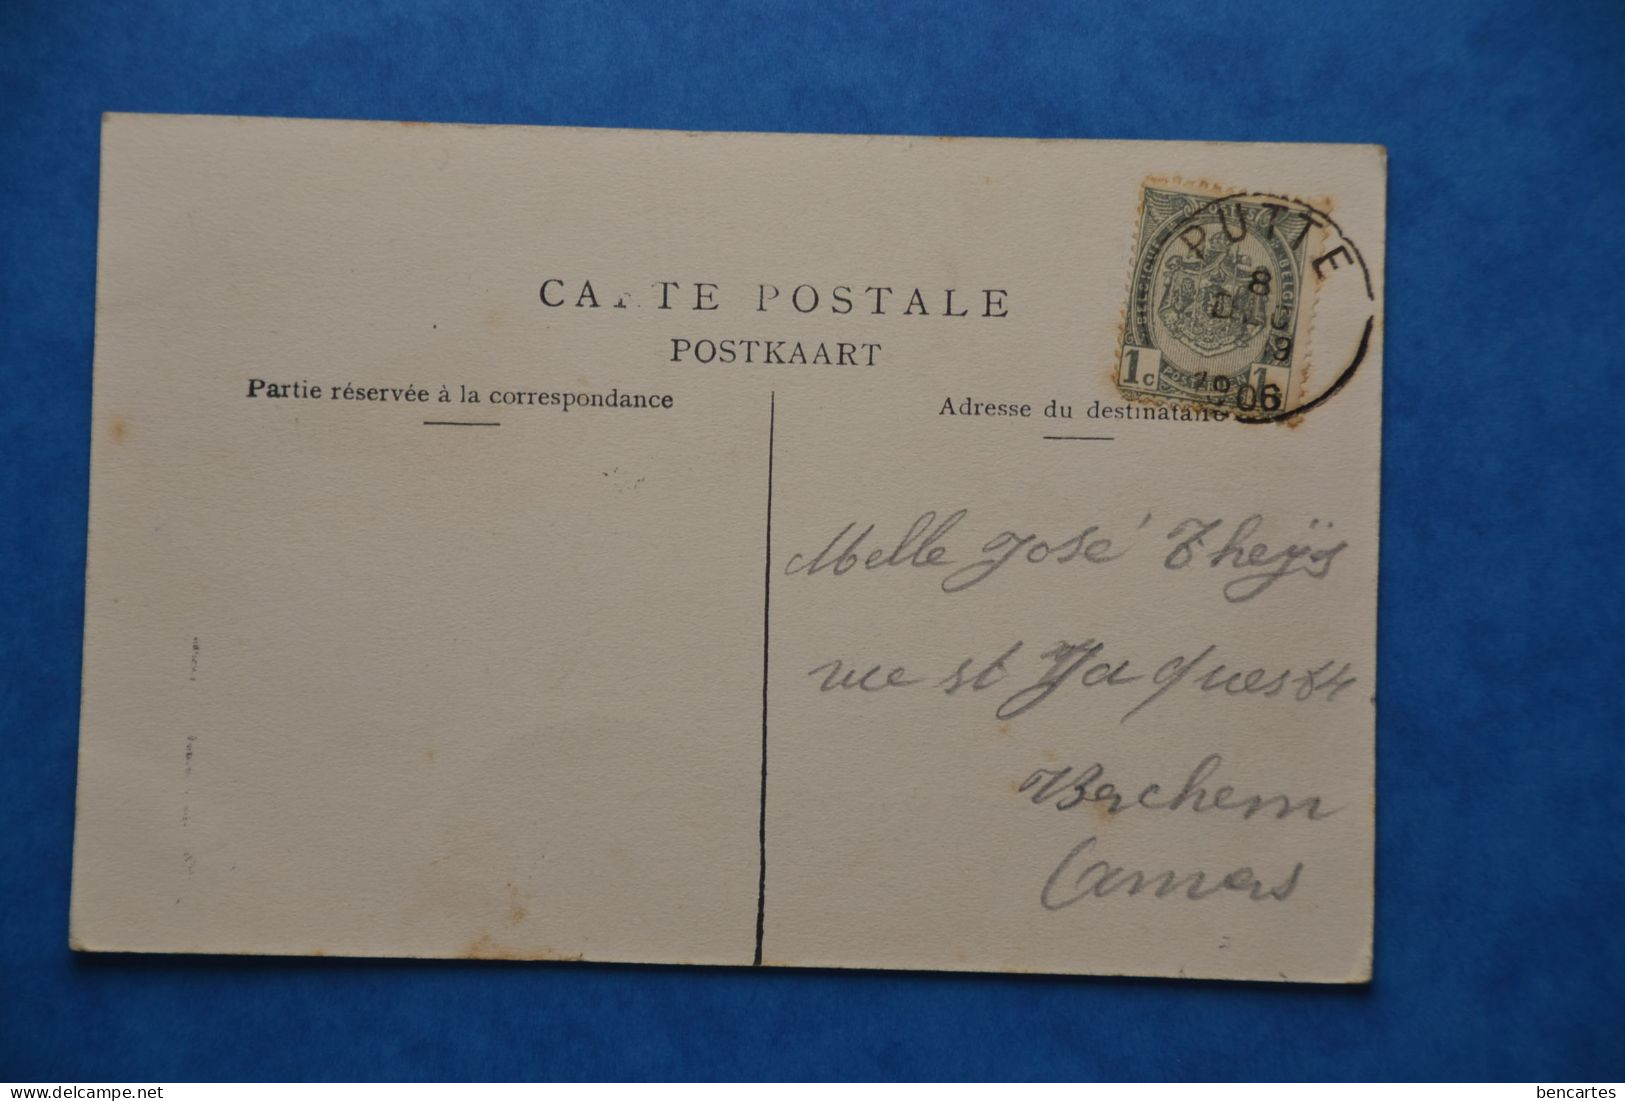 CARTE POSTALE
POSTKAART
Partie réservée à la correspondance
Adresse du destinataire
POSTES
BELGIQUE BELGIË
1c POSTERIJEN 1c
PUTTE
8
DEC
8
1906
Melle José Theÿs
rue st Jaques 84
Berchem
Anvers
bencartes